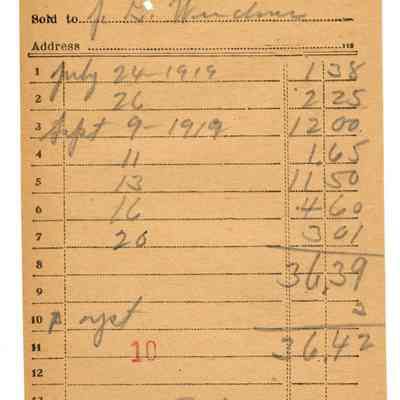 Sold to J. G. 
Address 191
1 July 24-1919 1 38
2 26 2 25
3 Sept 9-1919 12 00
4 11 1.65
5 13 11 50
6 16 4 60
7 20 3 01
8 36.39
9
10 3
11 10 36.42
12